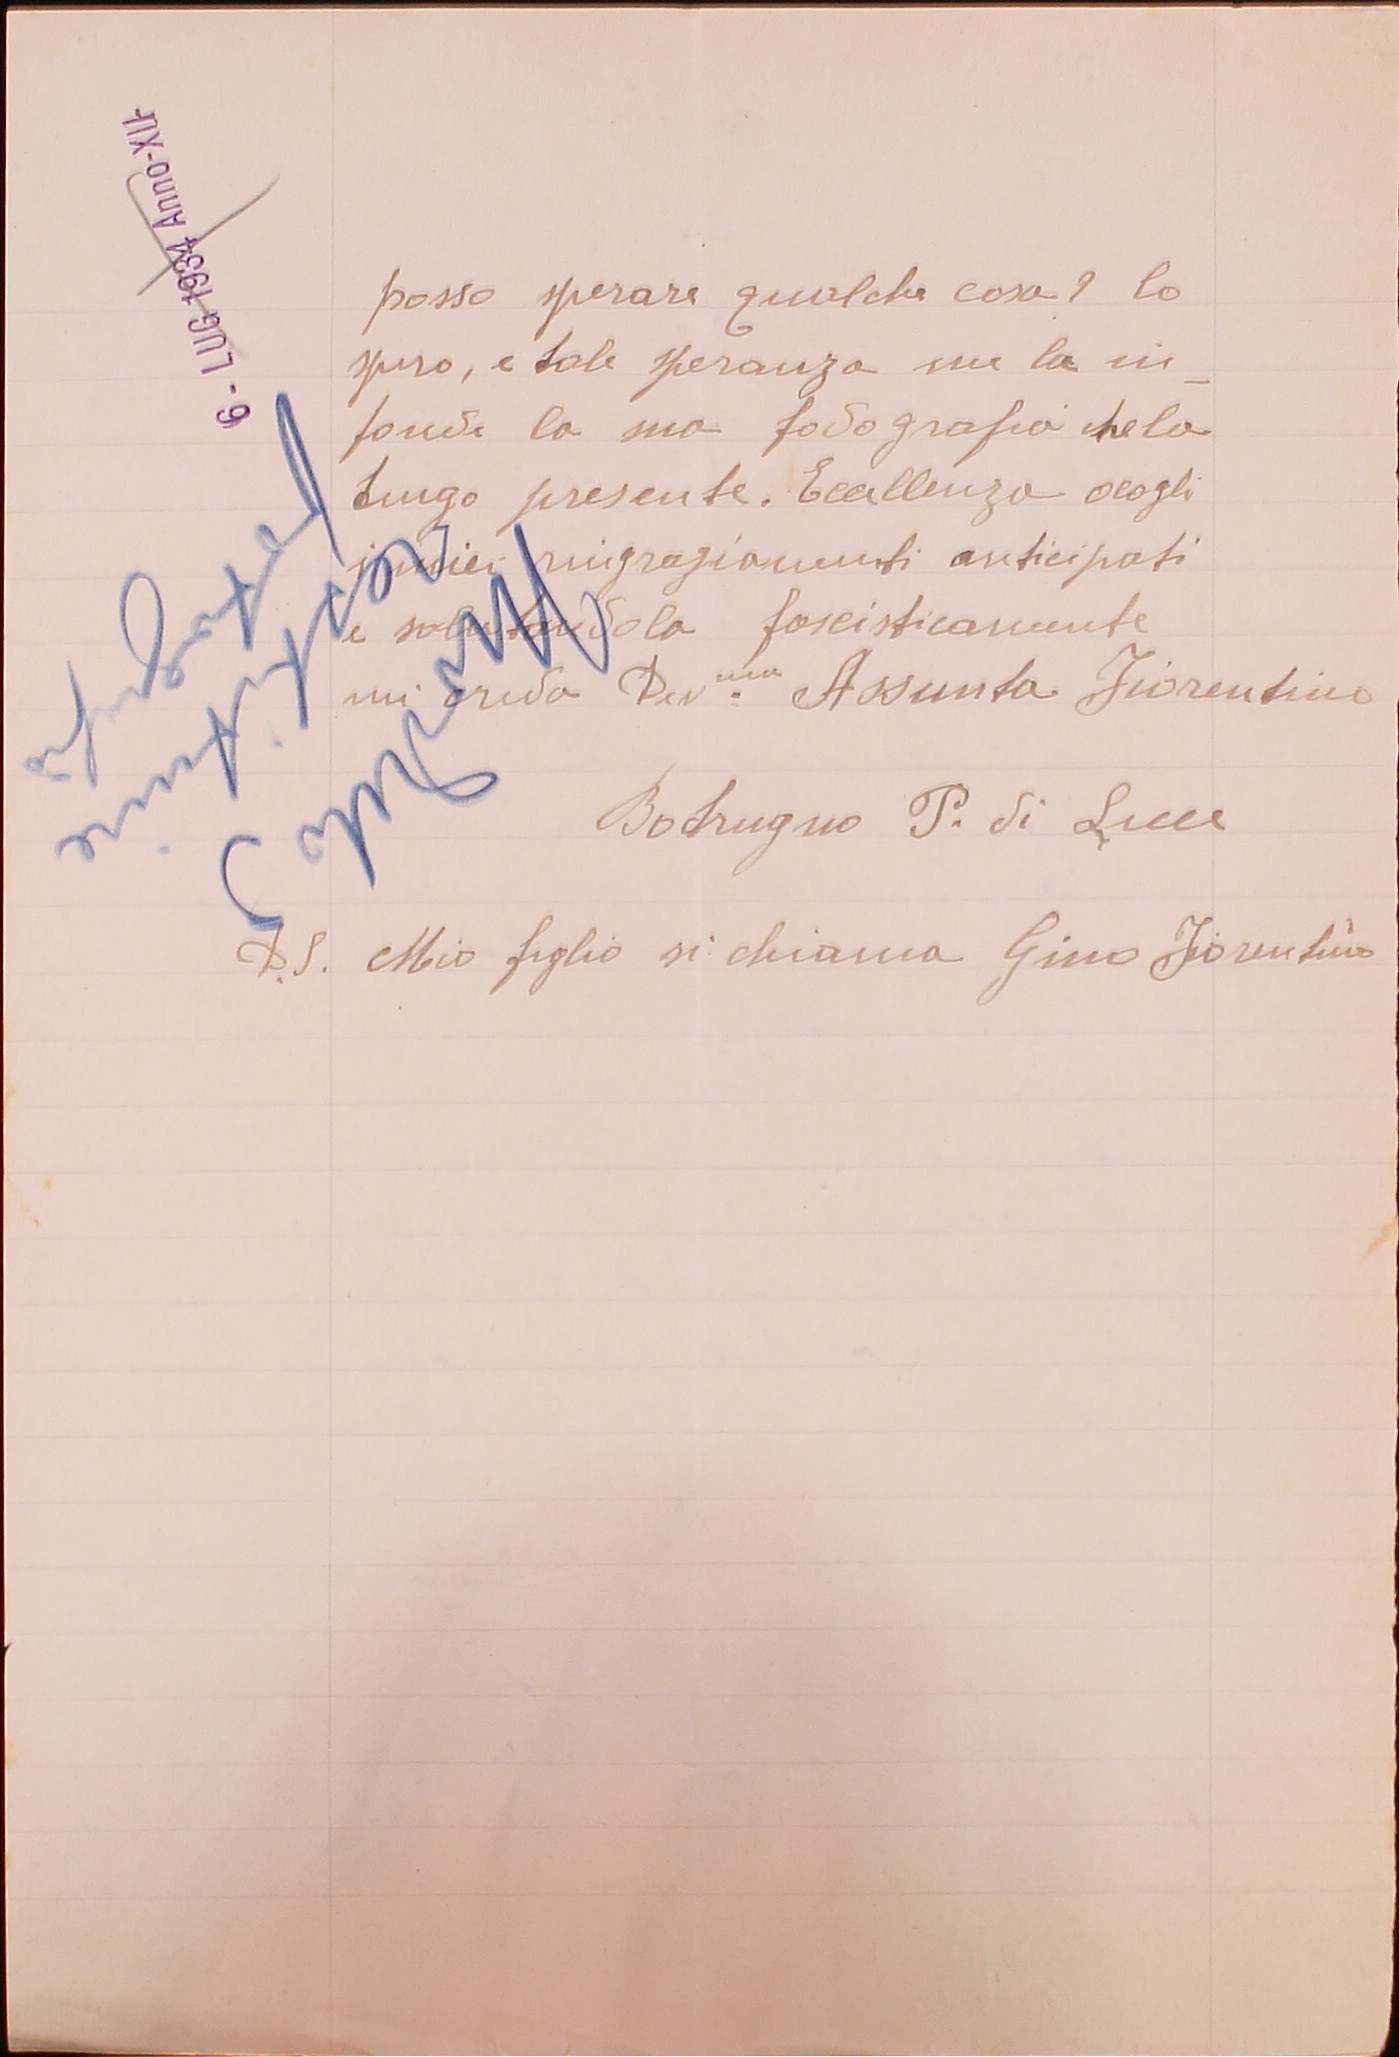 6 - LUG. 1934 Anno-XII
posso sperare qualche cosa? lo
spero, e tale speranza me la in_
fonde la sua fodografia che la
tengo presente. Eccellenza ocogli
i miei ringraziamenti anticipati
e salutandola fascisticamente
mi creda Dev.ma Assunta Fiorentino
Botrugno P. di Lecce
P.S. Mio figlio si chiama Gino Fiorentino